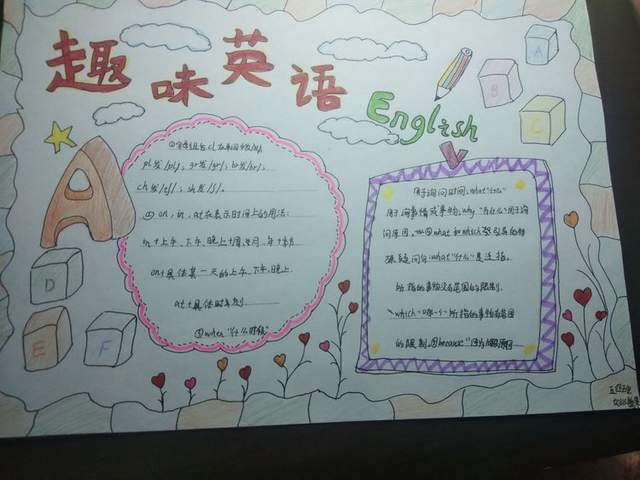 趣味英语
English
A
B
C
A
D
E
F
①字母组合cl在单词中发/kl/
pl发/pl/; gr发/gr/; br发/br/;
ch发/tʃ/; sh发/ʃ/.
②on, in, at在表示时间上的用法:
in+上午、下午、晚上、周、月、年、季节
on+具体某一天的上午、下午、晚上.
at+具体时刻
③when "什么时候"
用于询问时间, what "什么"
用于询事情或事物, why "为什么"用于询
问原因. ④what和which都引导的特
殊疑问句: what "什么" 是泛指,
所指的事物没有范围的限制,
which "哪一个" 所指的事物有范围
的限制. ⑤because "因为"